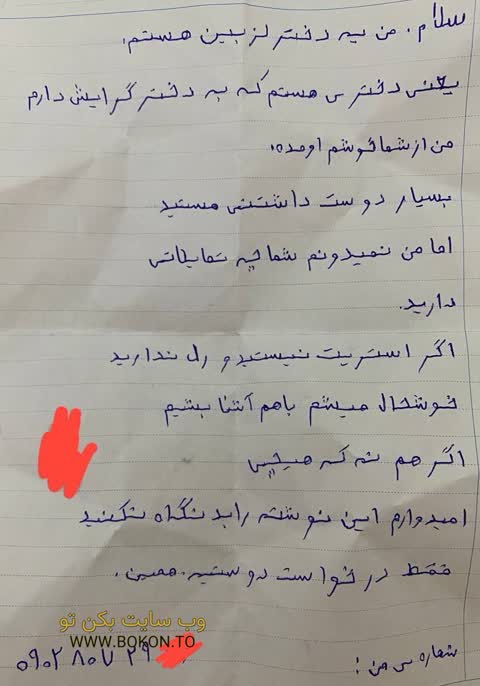 سلام. من یه دختر لزبین هستم.
یعنی دختری هستم که به دختر گرایش دارم
من از شما خوشم اومده.
بسیار دوست داشتنی هستید
اما من نمیدونم شما چه تمایلاتی
دارید.
اگر استریت نیستید و رل ندارید
خوشحال میشم باهم آشنا بشیم
اگر هم نه که هیچی
امیدوارم این نوشته را بد نگاه نکنید
فقط درخواست دوستیه. همین.
وب سایت بکن تو
WWW.BOKON.TO
شماره ی من:
۰۹۰۲۸۰۷۲۹